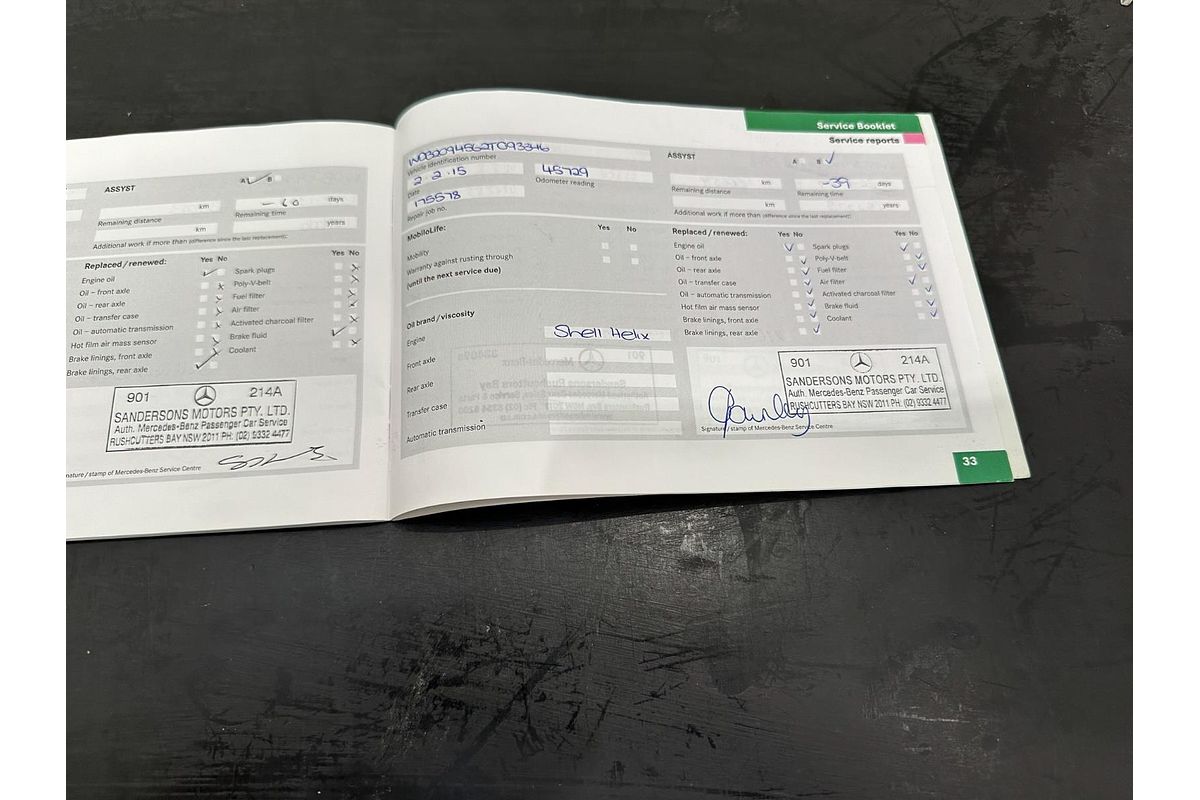 ASSYST
A B
km
days
Remaining distance
Remaining time
km
years
Additional work if more than (difference since the last replacement):
Replaced/renewed:
Yes No
Yes No
Engine oil
Spark plugs
Oil – front axle
Poly-V-belt
Oil – rear axle
Fuel filter
Oil – transfer case
Air filter
Oil – automatic transmission
Activated charcoal filter
Hot film air mass sensor
Brake fluid
Brake linings, front axle
Coolant
Brake linings, rear axle
901 214A
SANDERSONS MOTORS PTY. LTD.
Auth. Mercedes-Benz Passenger Car Service
RUSHCUTTERS BAY NSW 2011 PH: (02) 9332 4477
nature/stamp of Mercedes-Benz Service Centre
Service Booklet
Service reports
Vehicle identification number
2.2.15
45729
Date
Odometer reading
175578
Repair job no.
MobiloLife:
Yes No
Mobility
Warranty against rusting through
(until the next service due)
Oil brand/viscosity
Engine
Shell Helix
Front axle
Rear axle
Transfer case
Automatic transmission
ASSYST
A B
km
-39 days
Remaining distance
Remaining time
km
years
Additional work if more than (difference since the last replacement):
Replaced/renewed:
Yes No
Yes No
Engine oil
Spark plugs
Oil – front axle
Poly-V-belt
Oil – rear axle
Fuel filter
Oil – transfer case
Air filter
Oil – automatic transmission
Activated charcoal filter
Hot film air mass sensor
Brake fluid
Brake linings, front axle
Coolant
Brake linings, rear axle
901 214A
SANDERSONS MOTORS PTY. LTD.
Auth. Mercedes-Benz Passenger Car Service
RUSHCUTTERS BAY NSW 2011 PH: (02) 9332 4477
Signature/stamp of Mercedes-Benz Service Centre
33